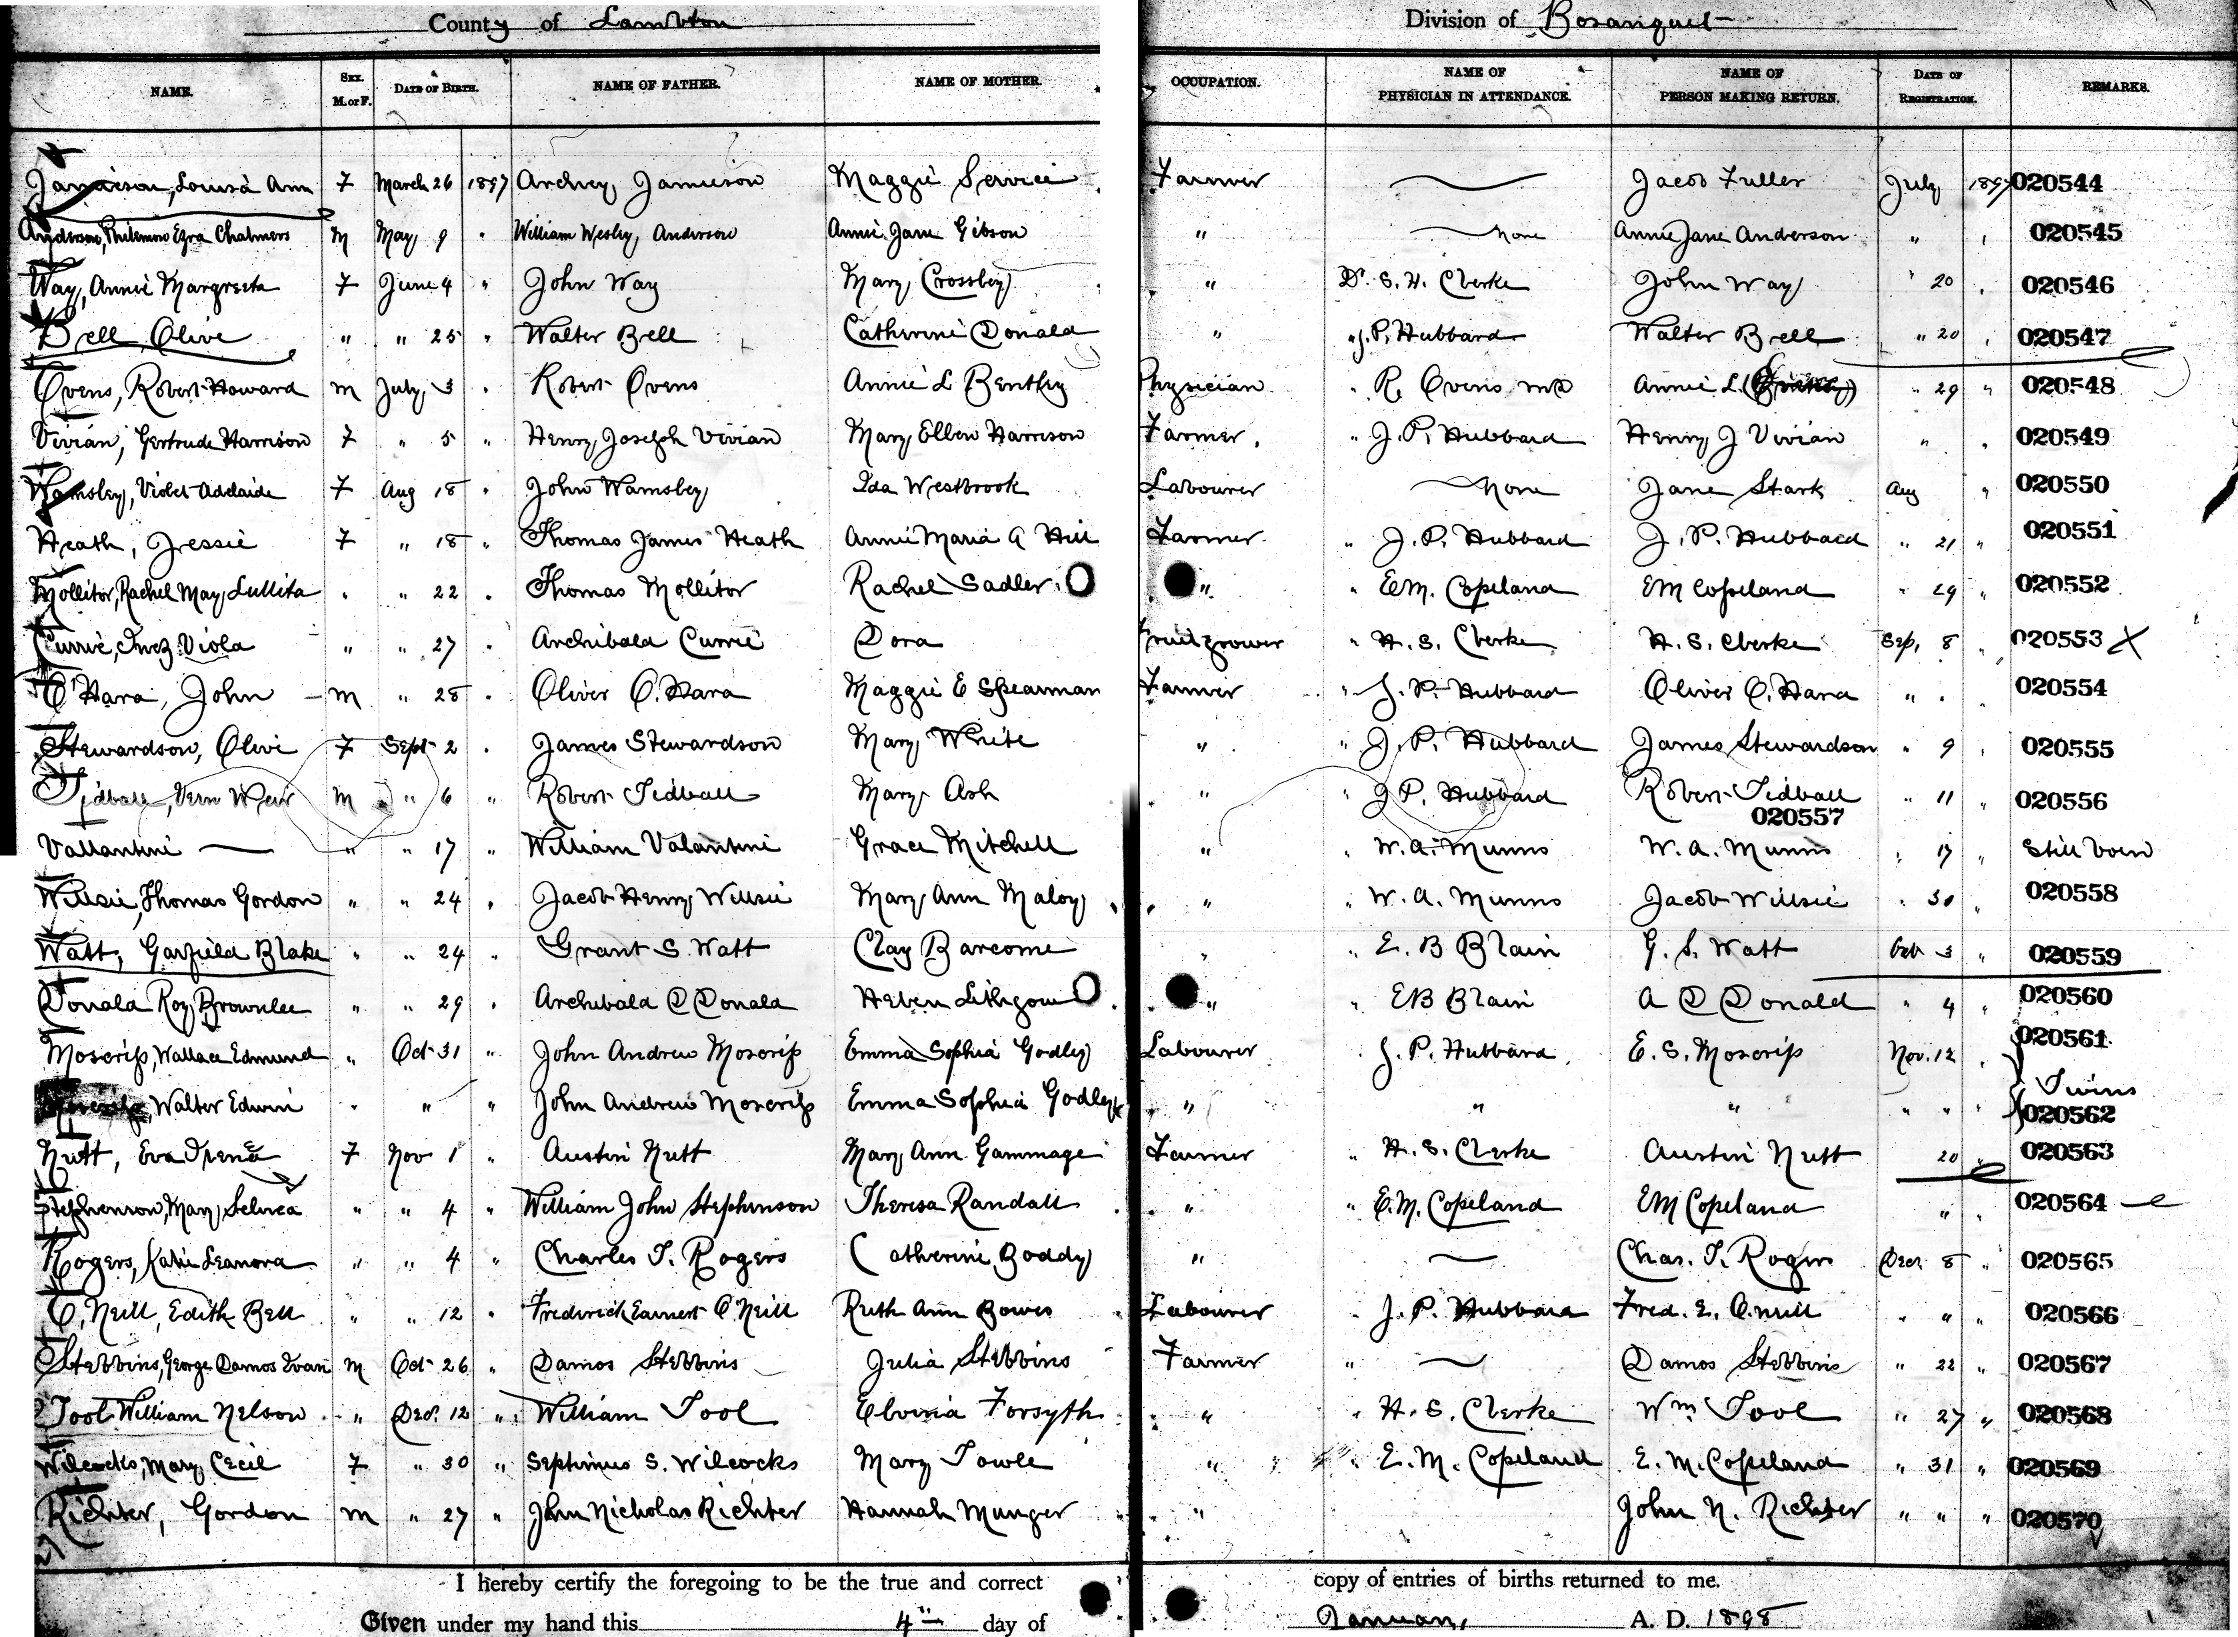 County of Lambton Division of Bosanquet
NAME. SEX. M. or F. DATE OF BIRTH. NAME OF FATHER. NAME OF MOTHER. OCCUPATION. NAME OF PHYSICIAN IN ATTENDANCE. NAME OF PERSON MAKING RETURN. DATE OF REGISTRATION. REMARKS.
Jamieson, Louisa Ann F March 26 1897 Archey Jamieson Maggie Service Farmer — Jacob Fuller July 1897 020544
Anderson, Philemon Ezra Chalmers M May 9 " William Wesley Anderson Annie Jane Gibson " None Annie Jane Anderson " " 020545
Way, Annie Margreeta F June 4 " John Way Mary Crossley " Dr. S. H. Clerke John Way " 20 " 020546
Bell, Olive " " 25 " Walter Bell Catherine Donald " " J. P. Hubbard Walter Bell " 20 " 020547
Ovens, Robert Howard M July 3 " Robert Ovens Annie L Bentley Physician " R. Ovens MD Annie L. " 29 " 020548
Vivian, Gertrude Harrison F " 5 " Henry Joseph Vivian Mary Ellen Harrison Farmer " J. P. Hubbard Henry J Vivian " " 020549
Wamsley, Violet Adelaide F Aug 18 " John Wamsley Ida Westbrook Labourer None Jane Stark Aug " 020550
Heath, Jessie F " 18 " Thomas James Heath Annie Maria A Hill Farmer " J. P. Hubbard J. P. Hubbard " 21 " 020551
Mollitor, Rachel May Lullita " " 22 " Thomas Mollitor Rachel Sadler " " E M. Copeland E M Copeland " 29 " 020552
Currie, Inez Viola " " 27 " Archibald Currie Dora Fruit grower " H. S. Clerke H. S. Clerke Sep. 8 " 020553 X
O'Hara, John M " 28 " Oliver O'Hara Maggie E Spearman Farmer " J. P. Hubbard Oliver O'Hara " " 020554
Stewardson, Olive F Sept 2 " James Stewardson Mary White " " J. P. Hubbard James Stewardson " 9 " 020555
Tidball, Vern Weir M " 6 " Robert Tidball Mary Ash " " J P. Hubbard Robert Tidball " 11 " 020556
020557
Vallantine — " " 17 " William Valantine Grace Mitchell " " W. A. Munns W. A. Munns " 17 " Still born
Willsie, Thomas Gordon " " 24 " Jacob Henry Willsie Mary Ann Maloy " " W. A. Munns Jacob Willsie " 30 " 020558
Watt, Garfield Blake " " 24 " Grant S. Watt Clay Barcome " " E. B Blain G. S. Watt Oct 3 " 020559
Donald Roy Brownlee " " 29 " Archibald D Donald Helen Lithgow " " E B Blain A D Donald " 4 " 020560
Moscrip, Wallace Edmund " Oct 31 " John Andrew Moscrip Emma Sophia Godley Labourer " J. P. Hubbard E. S. Moscrip Nov. 12 " 020561
Moscrip Walter Edwin " " " John Andrew Moscrip Emma Sophia Godley " " " " " " Twins 020562
Nutt, Eva Irena F Nov 1 " Austin Nutt Mary Ann Gammage Farmer " H. S. Clerke Austin Nutt 20 " 020563
Stephenson, Mary Selina " " 4 " William John Stephenson Theresa Randall " " E. M. Copeland E M Copeland " " 020564
Rogers, Katie Leanora " " 4 " Charles T. Rogers Catherine Boddy " — Chas. T. Rogers Dec. 8 " 020565
O'Neill, Edith Bell " " 12 " Frederick Earnest O'Neill Ruth Ann Bowes Labourer " J. P. Hubbard Fred. E. O'neill " " " 020566
Stebbins, George Damos Ivan M Oct 26 " Damos Stebbins Julia Stebbins Farmer " — Damos Stebbins " 22 " 020567
Tool William Nelson " Dec. 12 " William Tool Elvina Forsyth " " H. S. Clerke Wm Tool " 27 " 020568
Wilcocks, Mary Cecil F " 30 " Septimus S. Wilcocks Mary Towle " " E. M. Copeland E. M. Copeland " 31 " 020569
Richter, Gordon M " 27 " John Nicholas Richter Hannah Munger " John N. Richter " " " 020570
I hereby certify the foregoing to be the true and correct copy of entries of births returned to me.
Given under my hand this 4th day of January, A. D. 1898